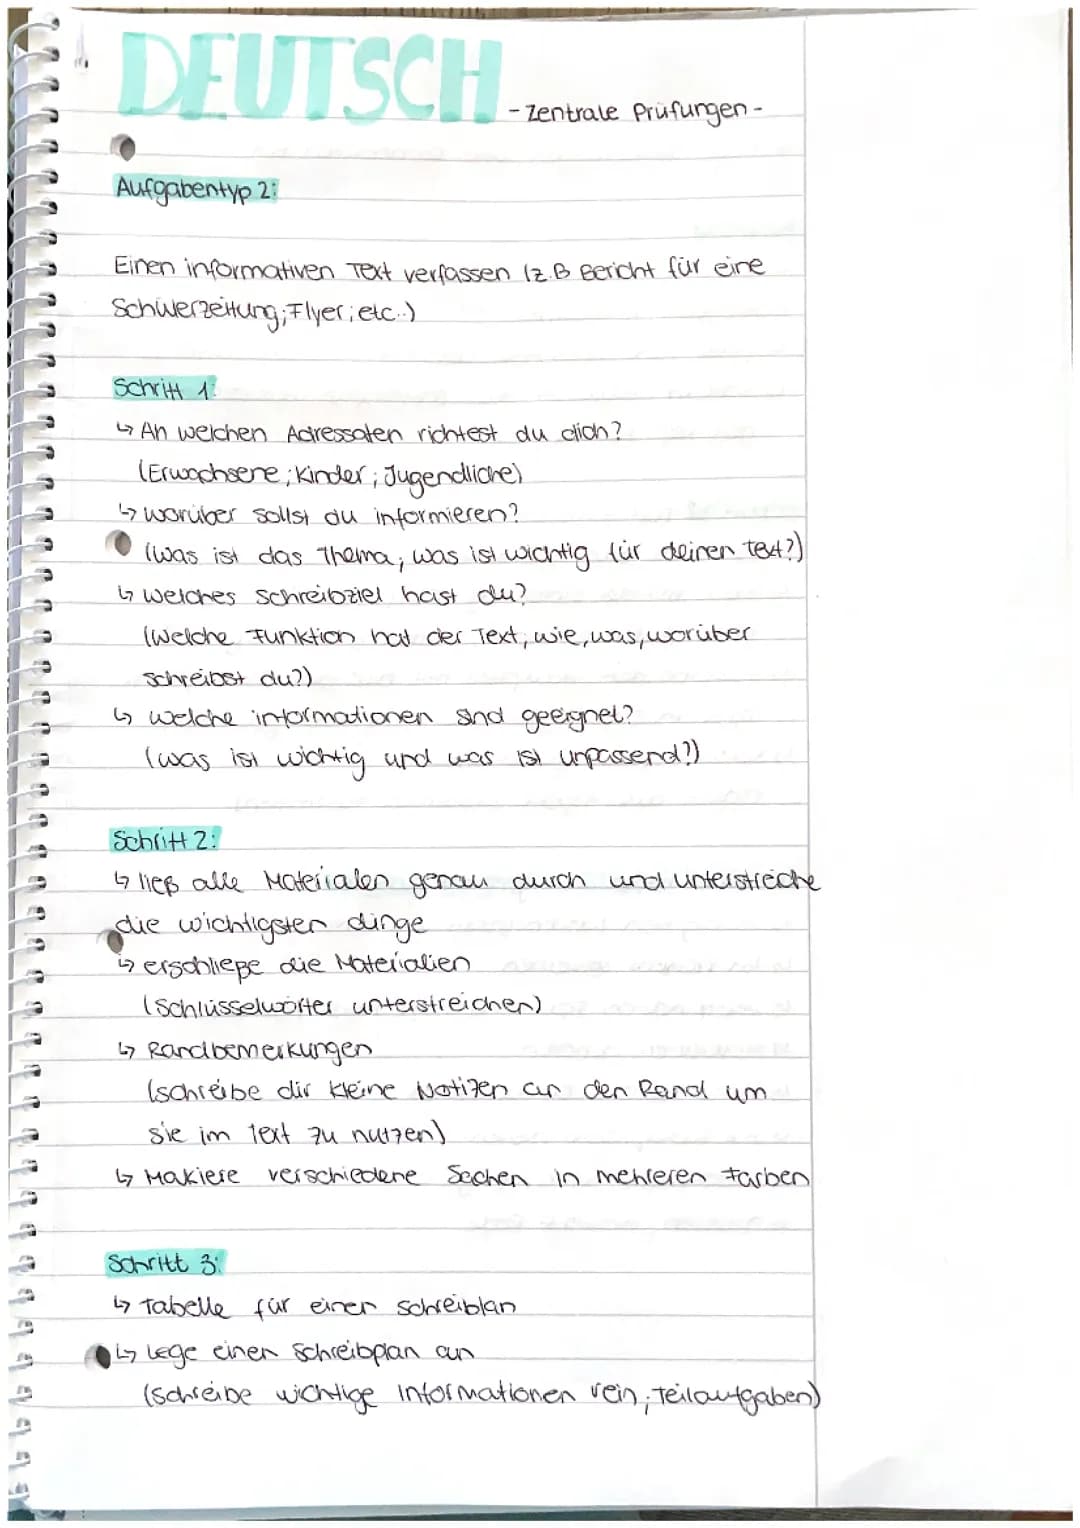 DEUTSCH
- Zentrale Prüfungen -
Aufgabentyp 2:
Einen informativen Text verfassen (z.B Bericht für eine
Schülerzeitung; Flyer; etc..)
Schritt 1:
↳ An welchen Adressaten richtest du dich?
(Erwachsene; Kinder; Jugendliche)
↳ worüber sollst du informieren?
(was ist das Thema; was ist wichtig für deinen text?)
↳ welches schreibziel hast du?
(welche Funktion hat der Text, wie, was, worüber
schreibst du?)
↳ welche informationen sind geeignet?
(was ist wichtig und was ist unpassend?)
Schritt 2:
↳ ließ alle Materialen genau durch und unterstreiche
die wichtigsten dinge
↳ erschließe die Materialien
(Schlüsselwörter unterstreichen)
↳ Randbemerkungen
(schreibe dir kleine Notizen an den Rand um
sie im Text zu nutzen)
↳ Makiere verschiedene Sachen in mehreren Farben
Schritt 3:
↳ Tabelle für einen schreiblan
↳ Lege einen Schreibplan an
(schreibe wichtige Informationen rein; Teilaufgaben)